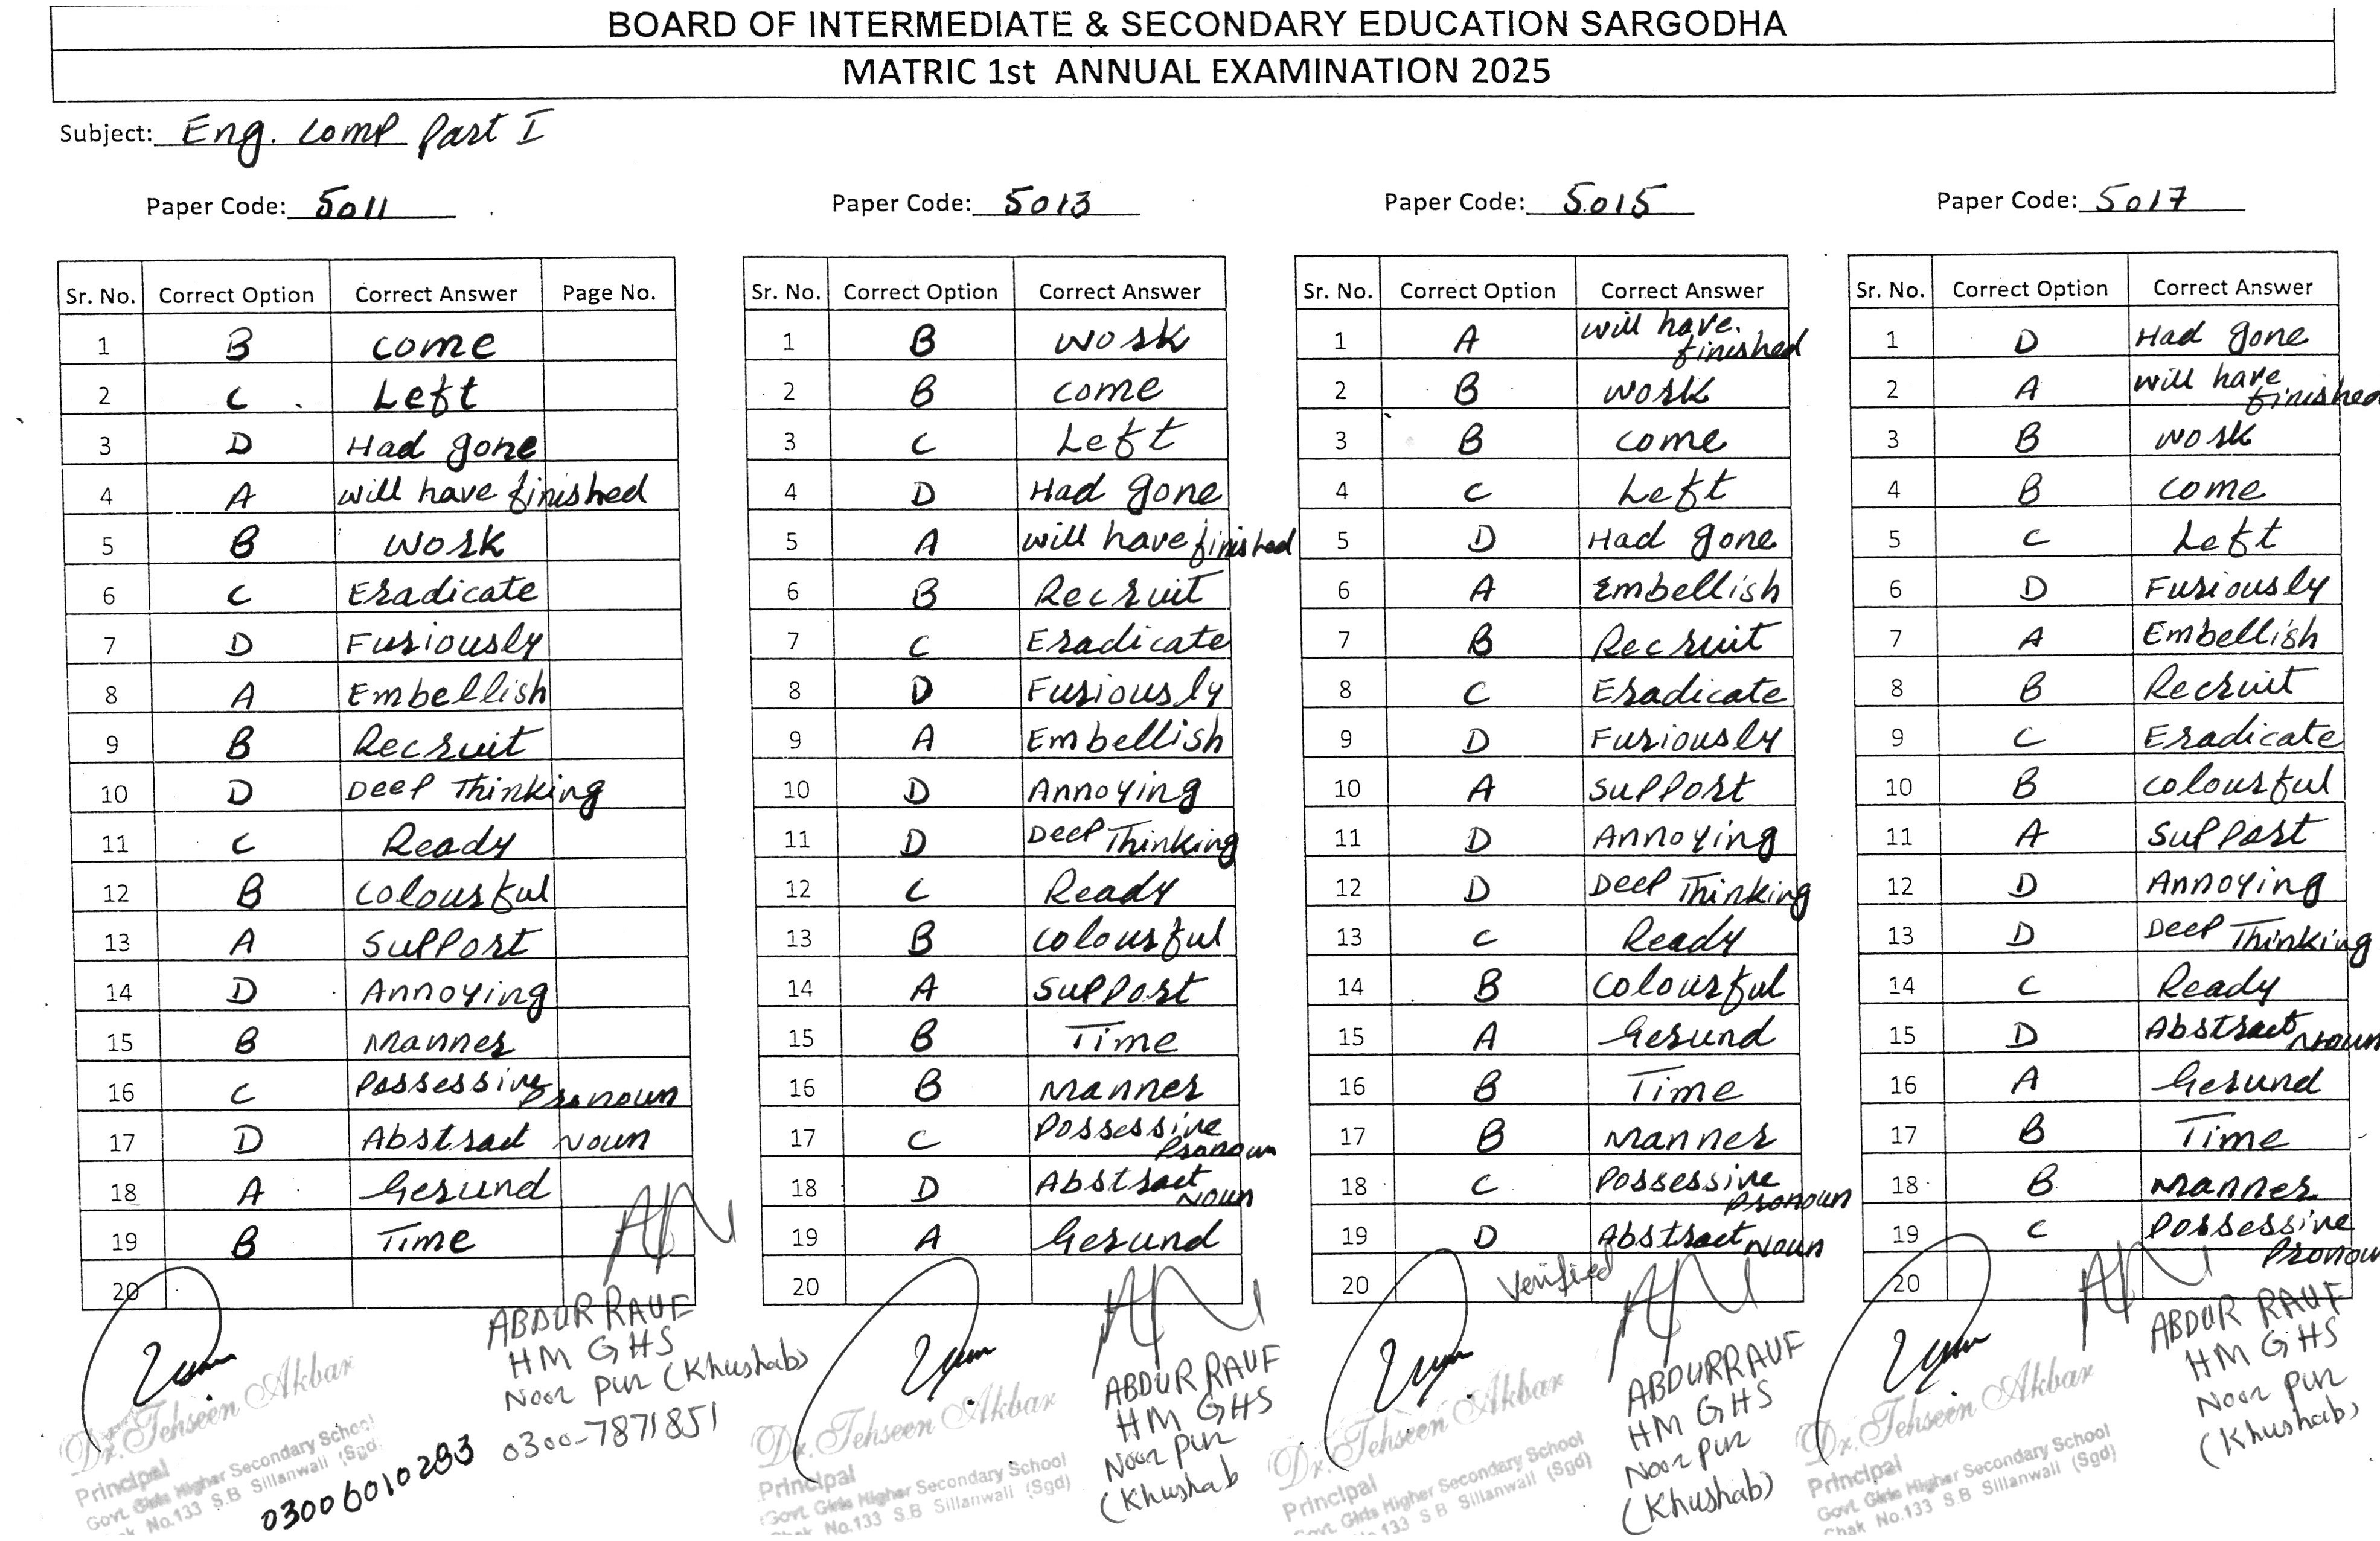 BOARD OF INTERMEDIATE & SECONDARY EDUCATION SARGODHA
MATRIC 1st ANNUAL EXAMINATION 2025
Subject: Eng. Comp Part I
Paper Code: 5011
Sr. No. Correct Option Correct Answer Page No.
1 B come
2 C Left
3 D Had gone
4 A will have finished
5 B work
6 C Eradicate
7 D Furiously
8 A Embellish
9 B Recruit
10 D Deep Thinking
11 C Ready
12 B Colourful
13 A Support
14 D Annoying
15 B Manner
16 C Possessive Pronoun
17 D Abstract Noun
18 A Gerund
19 B Time
20
Dr. Tehseen Akbar
Principal
Govt. Girls Higher Secondary School
No.133 S.B Sillanwali (Sgd.
03006010283
ABDUR RAUF
HM GHS
Noor Pur (Khushab)
0300-7871851
Paper Code: 5013
Sr. No. Correct Option Correct Answer
1 B work
2 B come
3 C Left
4 D Had gone
5 A will have finished
6 B Recruit
7 C Eradicate
8 D Furiously
9 A Embellish
10 D Annoying
11 D Deep Thinking
12 C Ready
13 B Colourful
14 A Support
15 B Time
16 B Manner
17 C Possessive Pronoun
18 D Abstract Noun
19 A Gerund
20
Dr. Tehseen Akbar
Principal
Govt. Girls Higher Secondary School
Chak No.133 S.B Sillanwali (Sgd)
ABDUR RAUF
HM GHS
Noor Pur
(Khushab
Paper Code: 5015
Sr. No. Correct Option Correct Answer
1 A will have finished
2 B work
3 B come
4 C Left
5 D Had gone
6 A Embellish
7 B Recruit
8 C Eradicate
9 D Furiously
10 A Support
11 D Annoying
12 D Deep Thinking
13 C Ready
14 B Colourful
15 A Gerund
16 B Time
17 B Manner
18 C Possessive Pronoun
19 D Abstract Noun
20 Verified
Dr. Tehseen Akbar
Principal
Govt. Girls Higher Secondary School
133 S.B Sillanwali (Sgd)
ABDUR RAUF
HM GHS
Noor Pur
(Khushab)
Paper Code: 5017
Sr. No. Correct Option Correct Answer
1 D Had gone
2 A will have finished
3 B work
4 B come
5 C Left
6 D Furiously
7 A Embellish
8 B Recruit
9 C Eradicate
10 B Colourful
11 A Support
12 D Annoying
13 D Deep Thinking
14 C Ready
15 D Abstract Noun
16 A Gerund
17 B Time
18 B Manner
19 C Possessive Pronou
20
Dr. Tehseen Akbar
Principal
Govt. Girls Higher Secondary School
Chak No.133 S.B Sillanwali (Sgd)
ABDUR RAUF
HM GHS
Noor Pur
(Khushab)